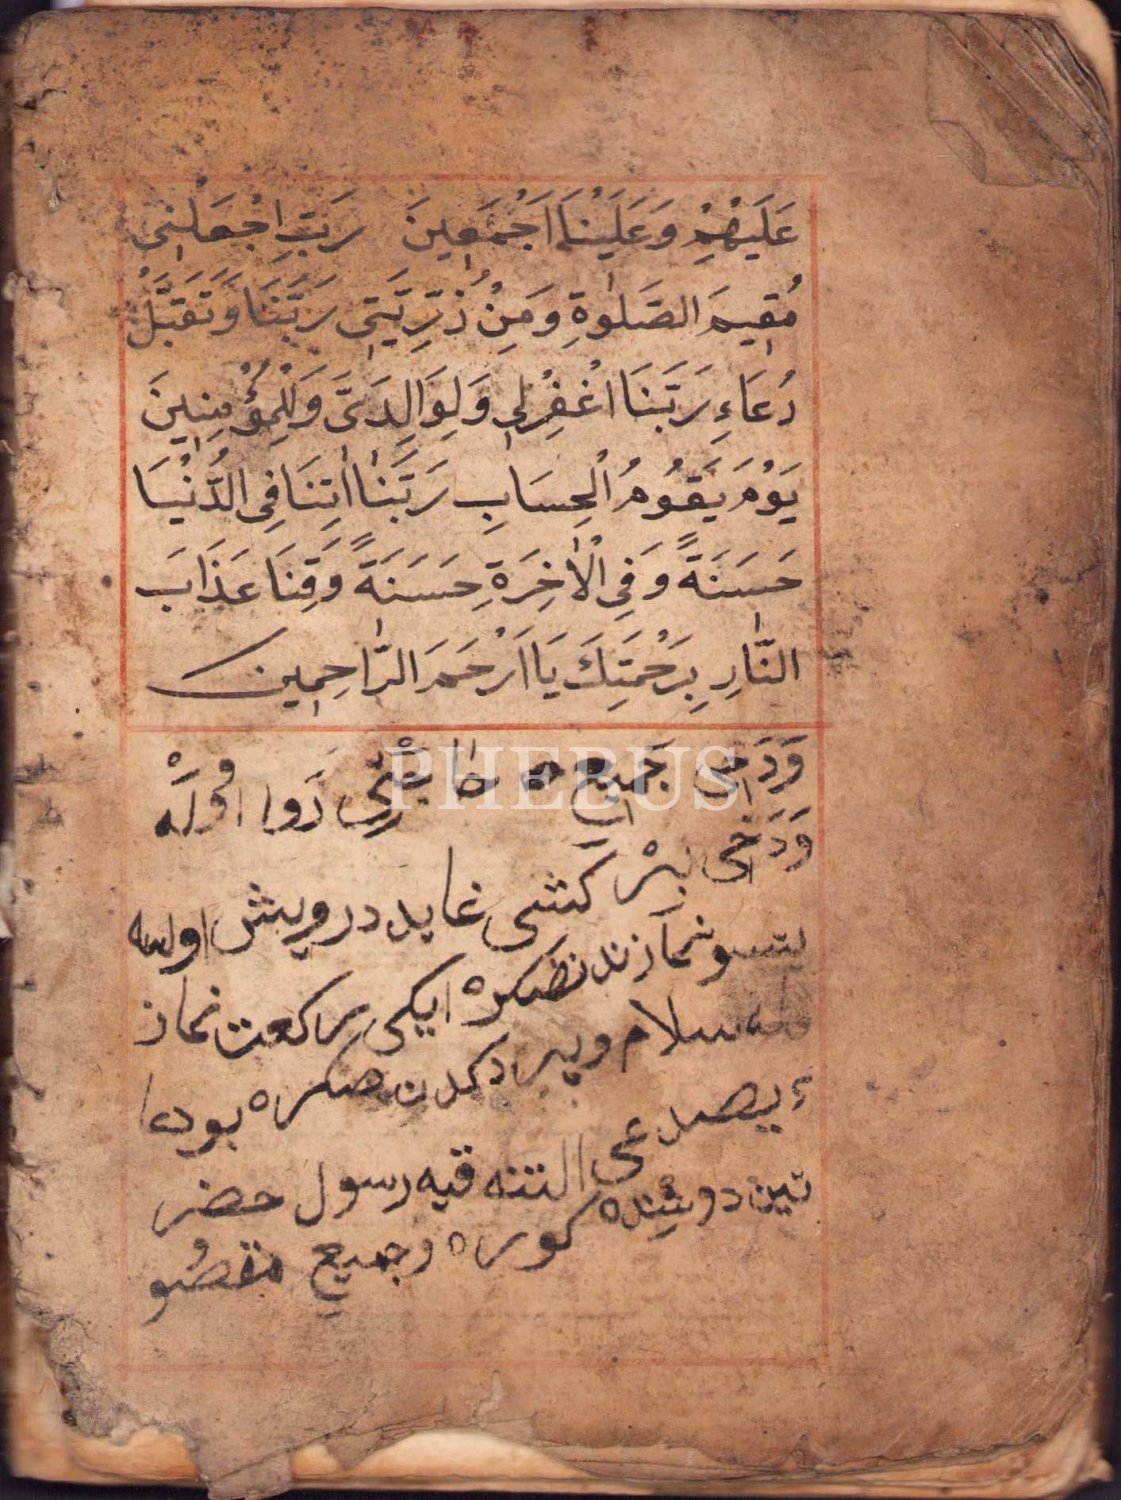 عَلَيْهِمْ وَعَلَيْنَا اَجْمَعِينَ رَبِّ اجْعَلْنِي
مُقِيمَ الصَّلٰوةِ وَمِنْ ذُرِّيَّتِي رَبَّنَا وَتَقَبَّلْ
دُعَاءِ رَبَّنَا اغْفِرْلِي وَلِوَالِدَيَّ وَلِلْمُؤْمِنِينَ
يَوْمَ يَقُومُ الْحِسَابِ رَبَّنَا اٰتِنَا فِي الدُّنْيَا
حَسَنَةً وَفِي الْاٰخِرَةِ حَسَنَةً وَقِنَا عَذَابَ
النَّارِ بِرَحْمَتِكَ يَا اَرْحَمَ الرَّاحِمِين
PHEBUS
وَدَخِي جَمِيعِ دَوا اُولَه
وَدَخِي بِرْ كشى غايد درويش اولسه
يتسو نمازندنصكره ايكى ركعت نماز
سلام ويردكدن صكره بودعا
التنه قيه رسول حضر
تين دوشنده كوره وجميع مقصو